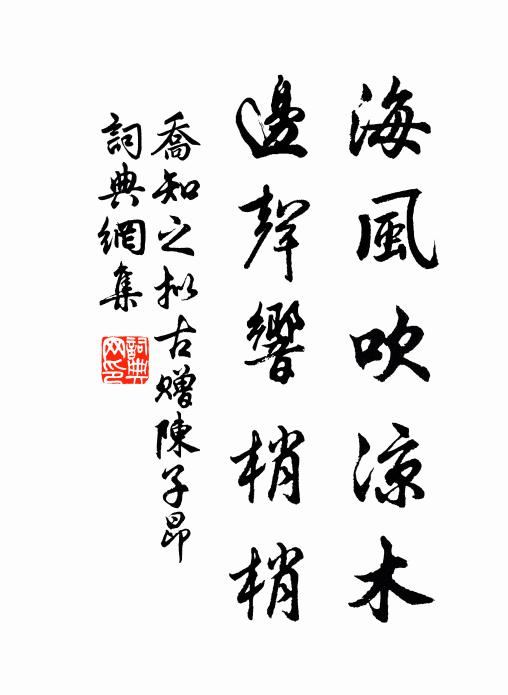 海風吹涼木
邊聲響梢梢
喬知之擬古贈陳子昂
詞典網集
詞典网印